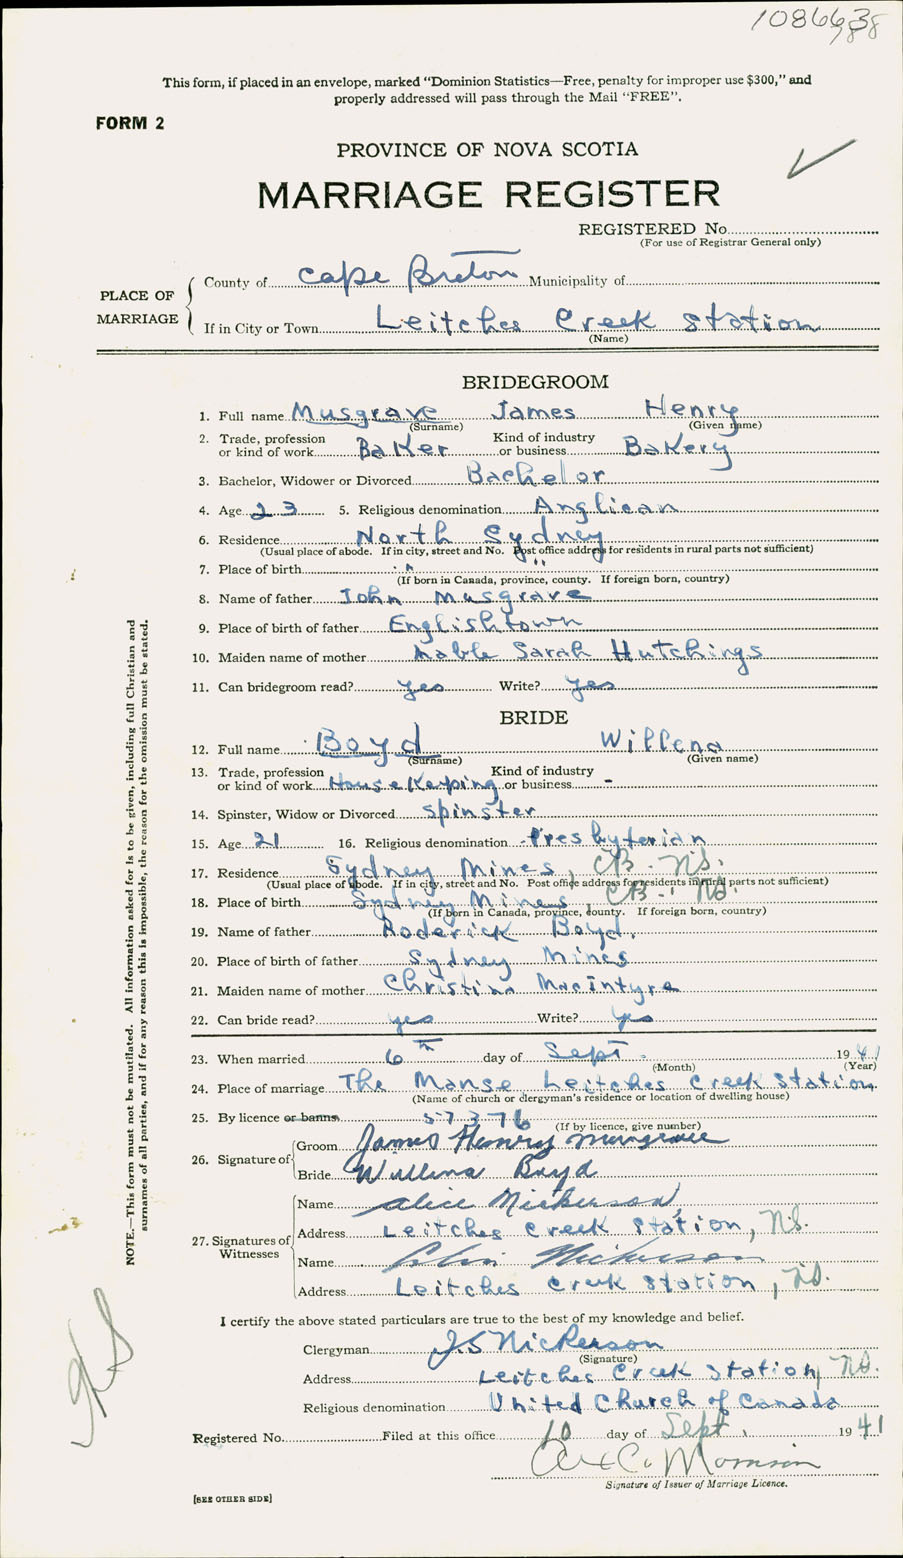 This form, if placed in an envelope, marked "Dominion Statistics—Free, penalty for improper use $300," and
properly addressed will pass through the Mail "FREE".
FORM 2
PROVINCE OF NOVA SCOTIA
MARRIAGE REGISTER
REGISTERED No.
(For use of Registrar General only)
PLACE OF MARRIAGE
County of Cape Breton Municipality of
If in City or Town Leitches Creek Station
(Name)
BRIDEGROOM
1. Full name Musgrave James Henry
(Surname) (Given name)
2. Trade, profession or kind of work Baker Kind of industry or business Bakery
3. Bachelor, Widower or Divorced Bachelor
4. Age 23 5. Religious denomination Anglican
6. Residence North Sydney
(Usual place of abode. If in city, street and No. Post office address for residents in rural parts not sufficient)
7. Place of birth " "
(If born in Canada, province, county. If foreign born, country)
8. Name of father John Musgrave
9. Place of birth of father Englishtown
10. Maiden name of mother Mable Sarah Hutchings
11. Can bridegroom read? yes Write? yes
BRIDE
12. Full name Boyd Willena
(Surname) (Given name)
13. Trade, profession or kind of work Housekeeping Kind of industry or business -
14. Spinster, Widow or Divorced Spinster
15. Age 21 16. Religious denomination Presbyterian
17. Residence Sydney Mines, CB. NS.
(Usual place of abode. If in city, street and No. Post office address for residents in rural parts not sufficient)
18. Place of birth Sydney Mines, CB. NS.
(If born in Canada, province, county. If foreign born, country)
19. Name of father Roderick Boyd.
20. Place of birth of father Sydney Mines
21. Maiden name of mother Christina Macintyre
22. Can bride read? yes Write? yes
23. When married 6th day of Sept. 1941
(Month) (Year)
24. Place of marriage The Manse Leitches Creek Station
(Name of church or clergyman's residence or location of dwelling house)
25. By licence or banns 57376
(If by licence, give number)
26. Signature of
Groom James Henry Musgrave
Bride Willena Boyd
27. Signatures of Witnesses
Name Alice Nickerson
Address Leitches Creek Station, N.S.
Name Nickerson
Address Leitches Creek Station, N.S.
I certify the above stated particulars are true to the best of my knowledge and belief.
Clergyman J.S Nickerson
(Signature)
Address Leitches Creek Station, N.S.
Religious denomination United Church of Canada
Registered No. Filed at this office 10 day of Sept. 1941
C. Morrison
Signature of Issuer of Marriage Licence.
[SEE OTHER SIDE]
NOTE.—This form must not be mutilated. All information asked for is to be given, including full Christian and
surnames of all parties, and if for any reason this is impossible, the reason for the omission must be stated.